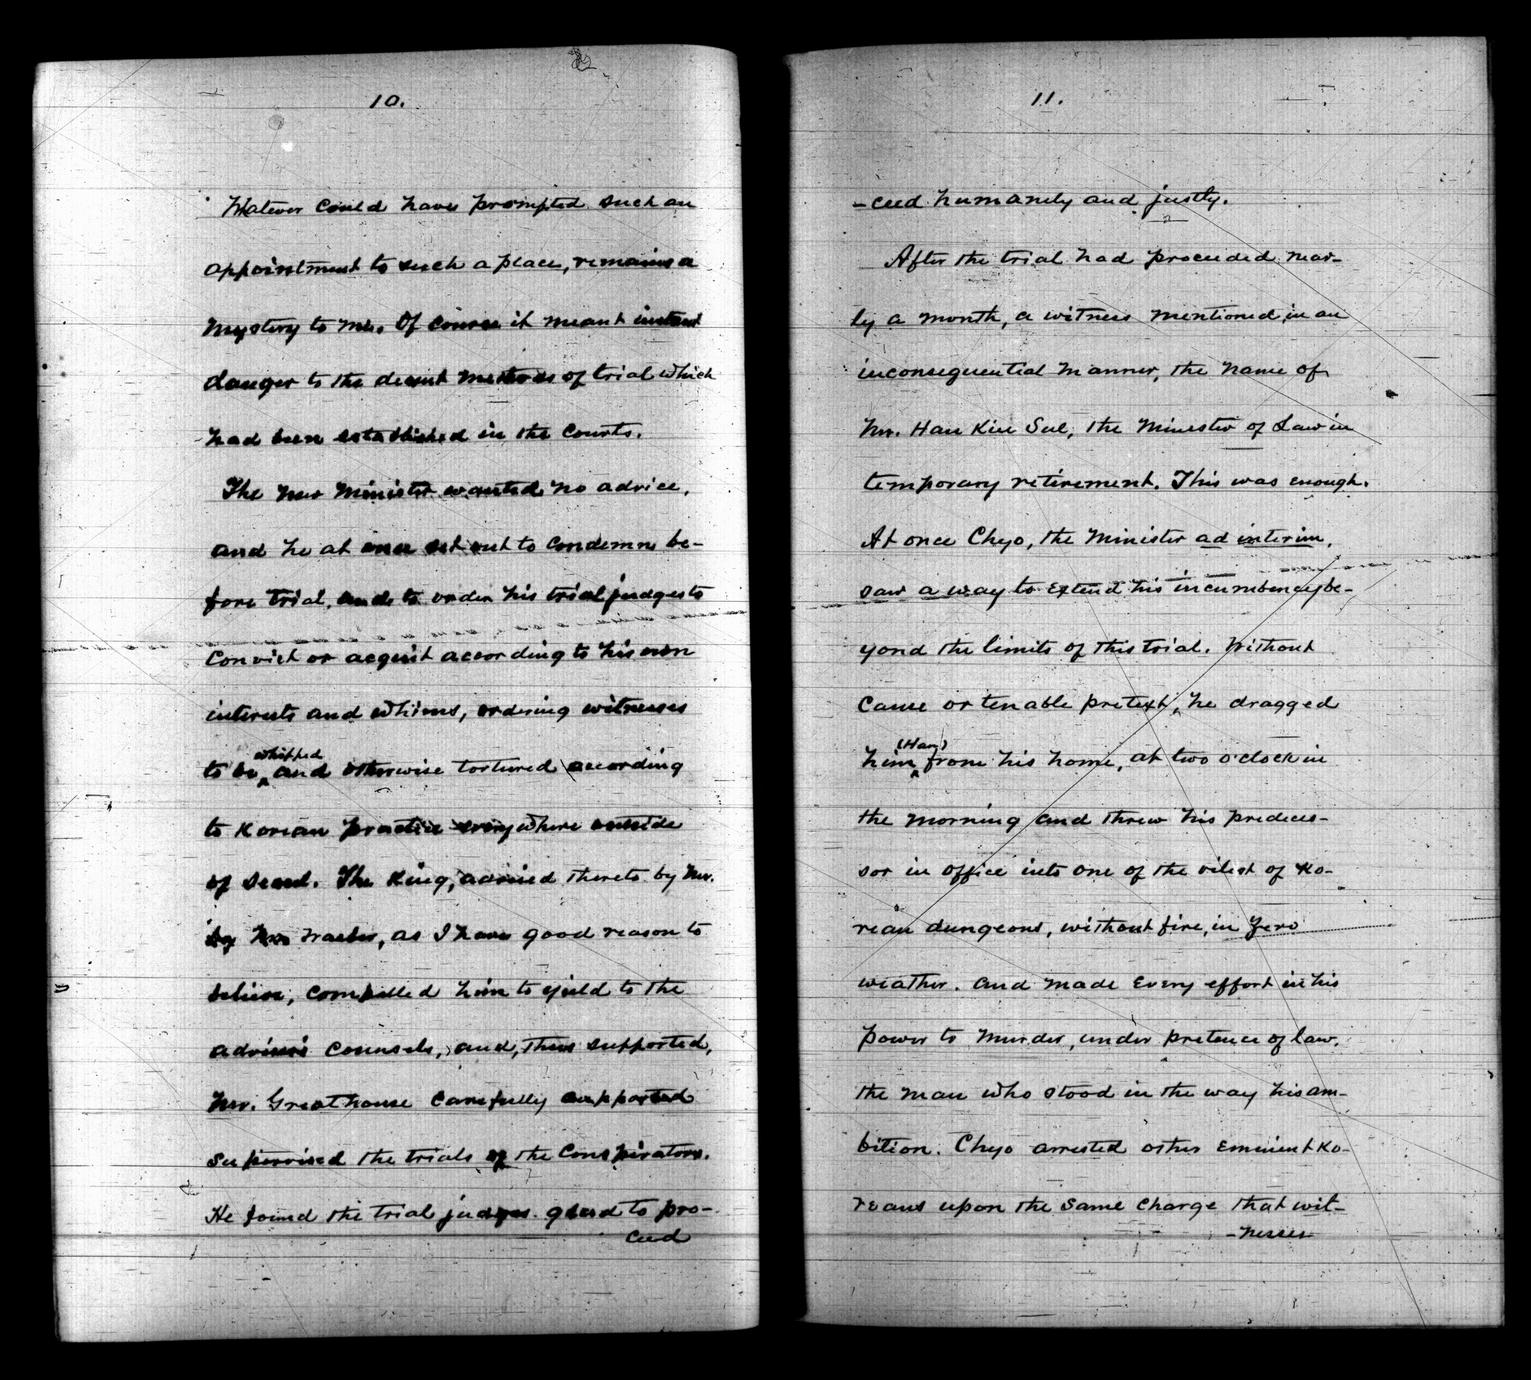 10.
Whatever could have prompted such an
appointment to such a place, remains a
mystery to me. Of course it meant instant
danger to the decent methods of trial which
had been established in the Courts.
The new Minister wanted no advice,
and he at once set out to condemn be-
fore trial, and to order his trial judges to
convict or acquit according to his own
interests and whims, ordering witnesses
whipped
to be and otherwise tortured according
to Korean practice everywhere outside
of Seoul. The King, advised thereto by Mr.
by Mr. Waeber, as I have good reason to
believe, compelled him to yield to the
adviser's counsels, and, thus supported,
Mr. Greathouse carefully supported
supervised the trials of the Conspirators.
He found the trial judges glad to pro-
ceed
11.
-ceed humanely and justly.
After the trial had proceeded near-
ly a month, a witness mentioned, in an
inconsequential manner, the name of
Mr. Han Kiu Sul, the Minister of Law in
temporary retirement. This was enough.
At once Chyo, the Minister ad interim,
saw a way to extend his incumbency be-
yond the limits of this trial. Without
cause or tenable pretext, he dragged
(Han)
him from his home, at two o'clock in
the morning and threw his predeces-
sor in office into one of the vilest of Ko-
rean dungeons, without fire, in Zero
weather. And made every effort in his
power to murder, under pretence of law,
the man who stood in the way his am-
bition. Chyo arrested other eminent Ko-
reans upon the same charge that wit-
-nesses